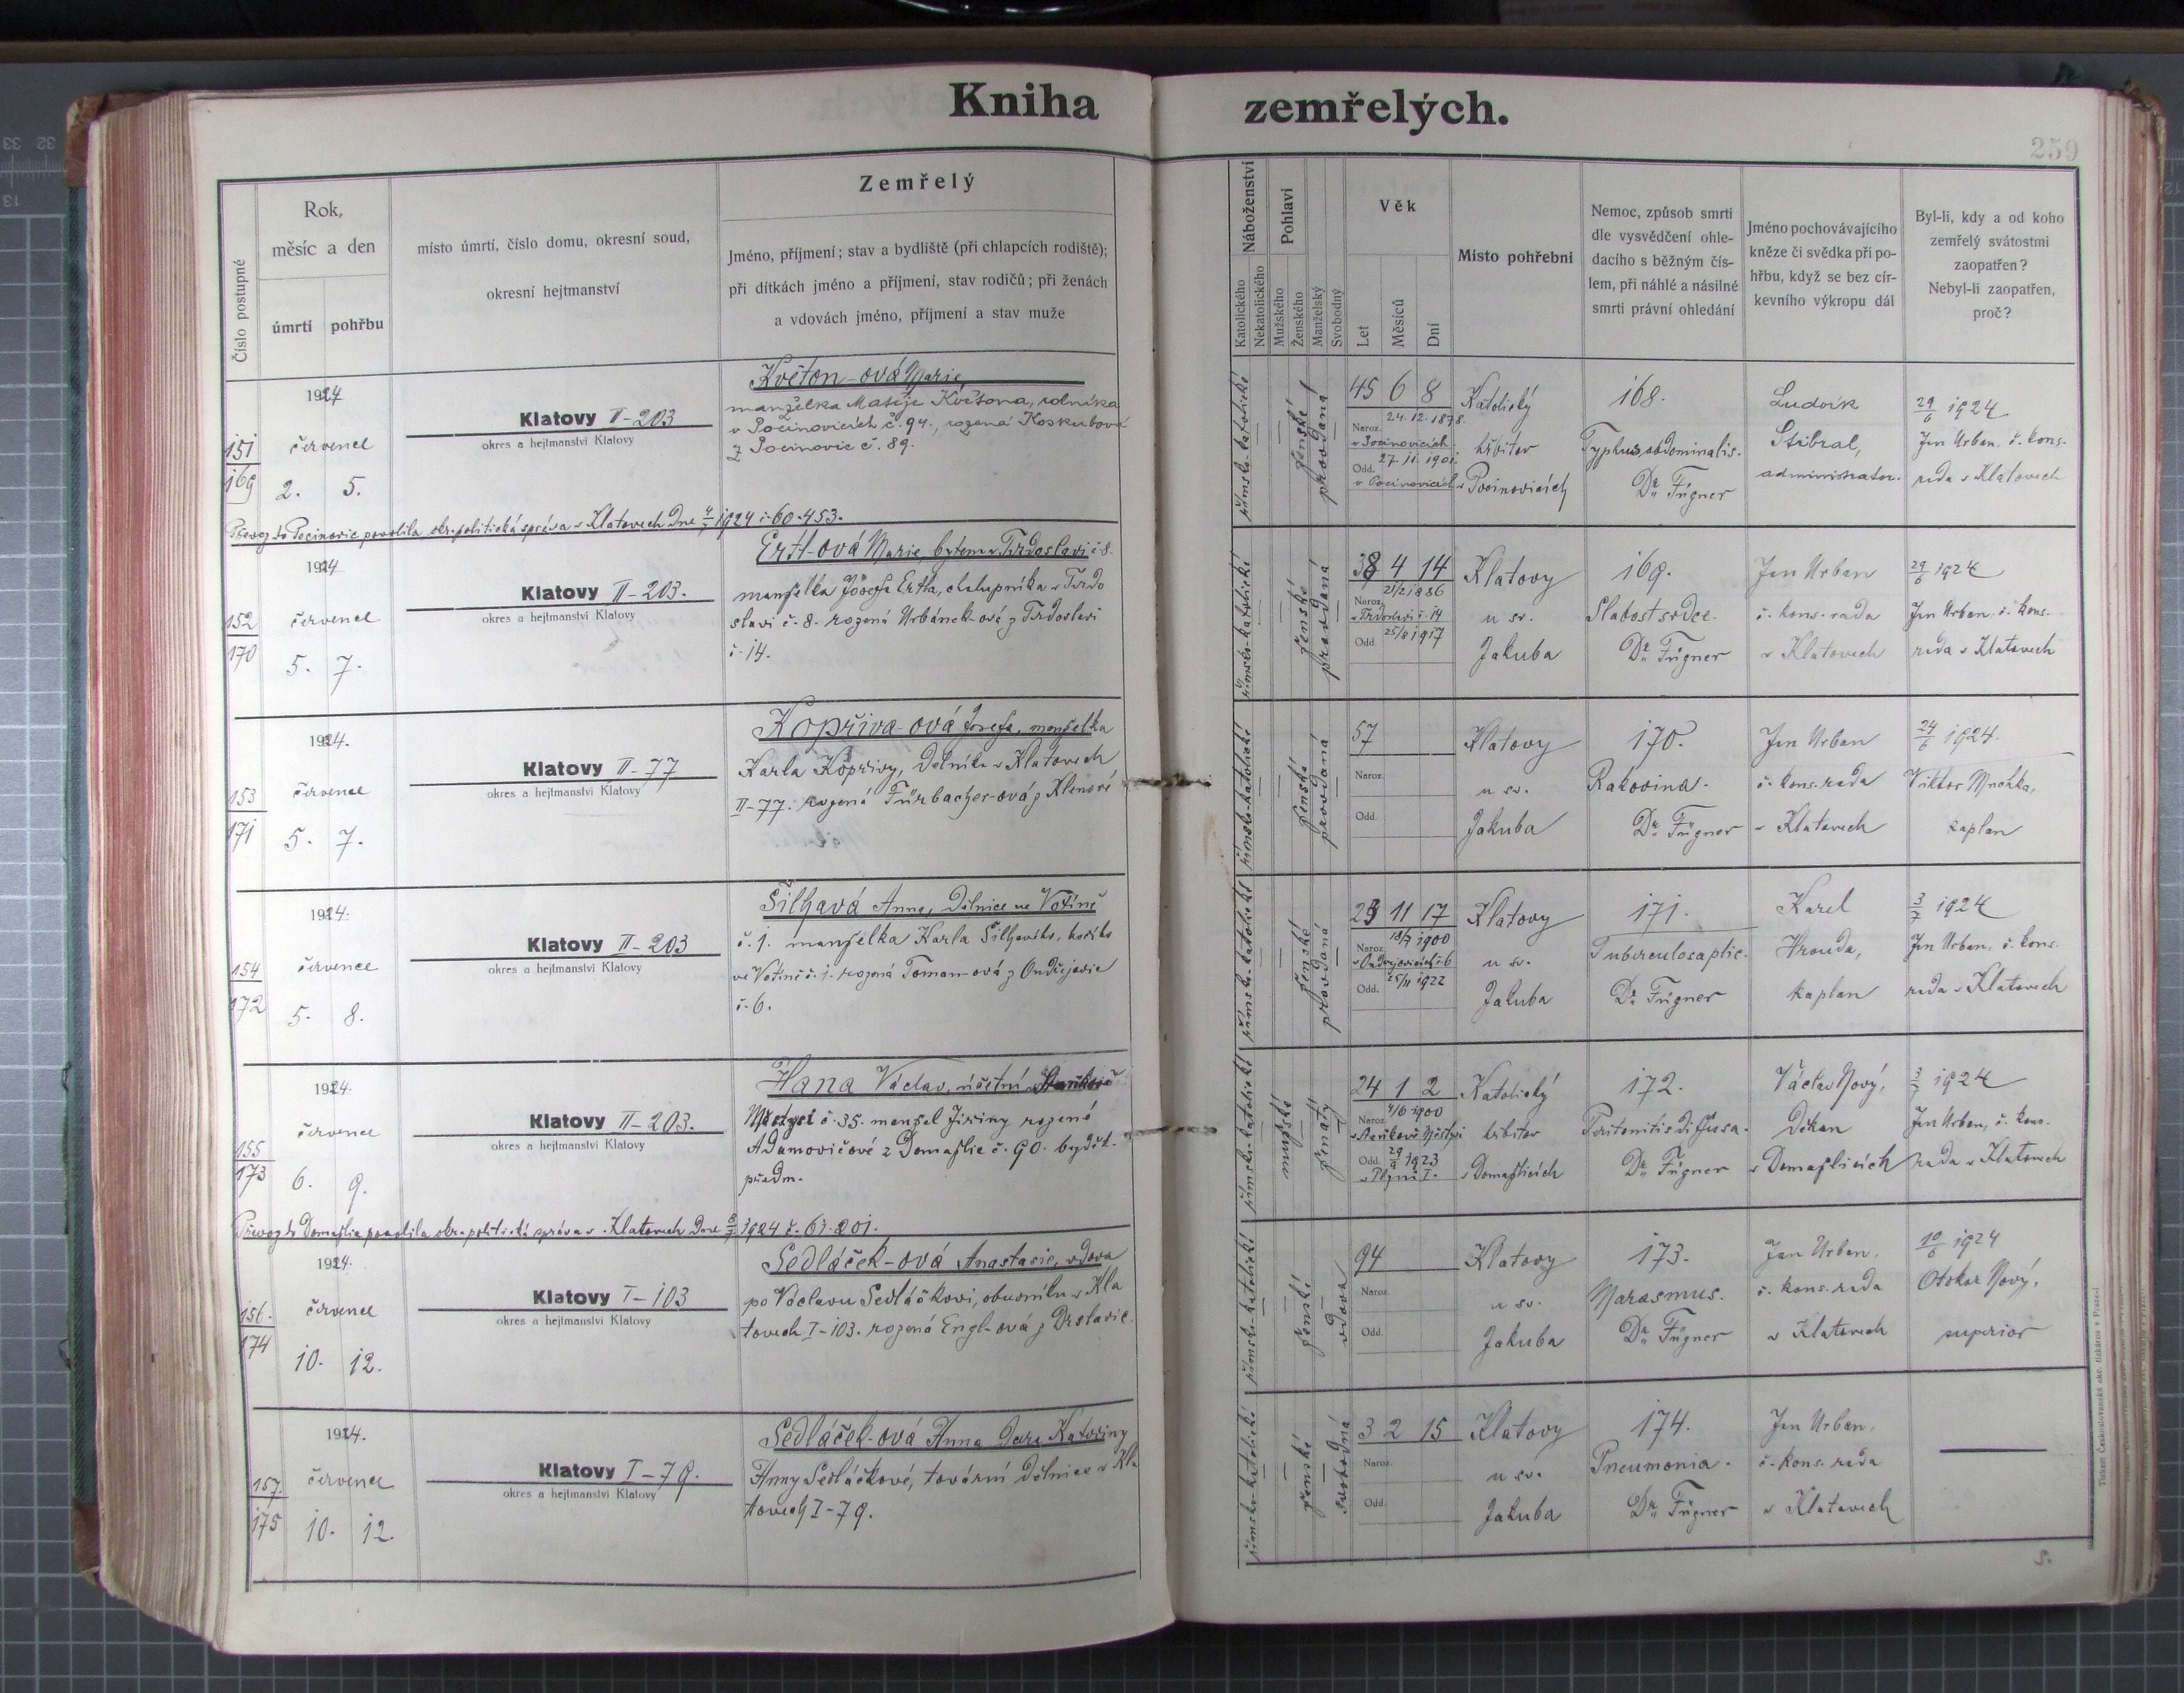 Kniha zemřelých.
259
Číslo postupné
Rok,
měsíc a den
úmrtí
pohřbu
místo úmrtí, číslo domu, okresní soud,
okresní hejtmanství
Zemřelý
Jméno, příjmení; stav a bydliště (při chlapcích rodiště);
při dítkách jméno a příjmení, stav rodičů; při ženách
a vdovách jméno, příjmení a stav muže
Náboženství
Katolického
Nekatolického
Pohlaví
Mužského
Ženského
Manželský
Svobodný
Věk
Let
Měsíců
Dní
Místo pohřební
Nemoc, způsob smrti
dle vysvědčení ohle-
dacího s běžným čís-
lem, při náhlé a násilné
smrti právní ohledání
Jméno pochovávajícího
kněze či svědka při po-
hřbu, když se bez cír-
kevního výkropu dál
Byl-li, kdy a od koho
zemřelý svátostmi
zaopatřen?
Nebyl-li zaopatřen,
proč?
151
169
1924
červenec
2. 5.
Klatovy II-203
okres a hejtmanství Klatovy
Květon-ová Marie,
manželka Matěje Květona, rolníka
v Pocinovicích č. 94., rozená Koskubová
z Pocinovic č. 89.
římsko-katolické
ženské
provdaná
45 6 8
Naroz. 24.12.1878.
v Pocinovicích.
Odd. 27.11.1901.
v Pocinovicích
Katolický
hřbitov
v Pocinovicích
168.
Typhus abdominalis.
Dr. Fügner
Ludvík
Stibral,
administrator.
29/6 1924
Jan Urban, č. kons.
rada v Klatovech
Převoz do Pocinovic povolila okr. politická správa v Klatovech dne 4/7 1924 č. 60.453.
152
170
1924
červenec
5. 7.
Klatovy II-203.
okres a hejtmanství Klatovy
Ertl-ová Marie, bytem v Tvrdoslavi č. 8.
manželka Josefa Ertla, chalupníka v Tvrdo
slavi č. 8. rozená Urbánek-ová z Tvrdoslavi
č. 14.
římsko-katolické
ženské
provdaná
38 4 14
Naroz. 21/2 1886
v Tvrdoslavi č. 14
Odd. 25/8 1917
Klatovy
u sv.
Jakuba
169.
Slabost srdce.
Dr. Fügner
Jan Urban
č. kons. rada
v Klatovech
29/6 1924
Jan Urban, č. kons.
rada v Klatovech
153
171
1924.
červenec
5. 7.
Klatovy II-77
okres a hejtmanství Klatovy
Kopřiva-ová Josefa, manželka
Karla Kopřivy, dělníka v Klatovech
II-77. rozená Fürbacher-ová z Klenové
římsko-katolické
ženské
provdaná
57
Naroz.
Odd.
Klatovy
u sv.
Jakuba
170.
Rakovina.
Dr. Fügner
Jan Urban
č. kons. rada
v Klatovech
24/6 1924.
Viktor
kaplan
154
172
1924.
červenec
5. 8.
Klatovy II-203
okres a hejtmanství Klatovy
Šilhavá Anna, dělnice ve Votíně
č. 1. manželka Karla Šilhavého,
ve Votíně č. 1. rozená Toman-ová z Ondřejovic
č. 6.
římsko-katolické
ženské
provdaná
23 11 17
Naroz. 18/7 1900
v Ondřejovicích č. 6
Odd. 25/11 1922
Klatovy
u sv.
Jakuba
171.
Tuberculosa plic.
Dr. Fügner
Karel
Hrouda,
kaplan
3/7 1924
Jan Urban, č. kons.
rada v Klatovech
155
173
1924.
červenec
6. 9.
Klatovy II-203.
okres a hejtmanství Klatovy
Hana Václav, účetní v Staňkově
Městysi č. 35. manžel Jiřiny rozené
Adamovičové z Domažlic č. 90.
římsko-katolické
mužské
ženatý
24 1 2
Naroz. 4/6 1900
v Staňkově Městysi
Odd. 29/9 1923
v Plzni I.
Katolický
hřbitov
v Domažlicích
172.
Peritonitis diffusa.
Dr. Fügner
Václav Nový,
děkan
v Domažlicích
3/7 1924
Jan Urban, č. kons.
rada v Klatovech
Převoz do Domažlic povolila okr. politická správa v Klatovech dne 8/7 1924 č. 61.201.
156.
174
1924.
červenec
10. 12.
Klatovy I-103
okres a hejtmanství Klatovy
Sedláček-ová Anastasie, vdova
po Václavu Sedláčkovi, obuvníku v Kla
tovech I-103. rozená Engl-ová z Drslavic.
římsko-katolické
ženské
vdova
94
Naroz.
Odd.
Klatovy
u sv.
Jakuba
173.
Marasmus.
Dr. Fügner
Jan Urban,
č. kons. rada
v Klatovech
10/6 1924
Otokar Nový,
superior
157.
175
1924.
červenec
10. 12.
Klatovy I-79.
okres a hejtmanství Klatovy
Sedláček-ová Anna dcera Kateřiny
Anny Sedláčkové, tovární dělnice v Kla
tovech I-79.
římsko-katolické
ženské
svobodná
3 2 15
Naroz.
Odd.
Klatovy
u sv.
Jakuba
174.
Pneumonia.
Dr. Fügner
Jan Urban,
č. kons. rada
v Klatovech